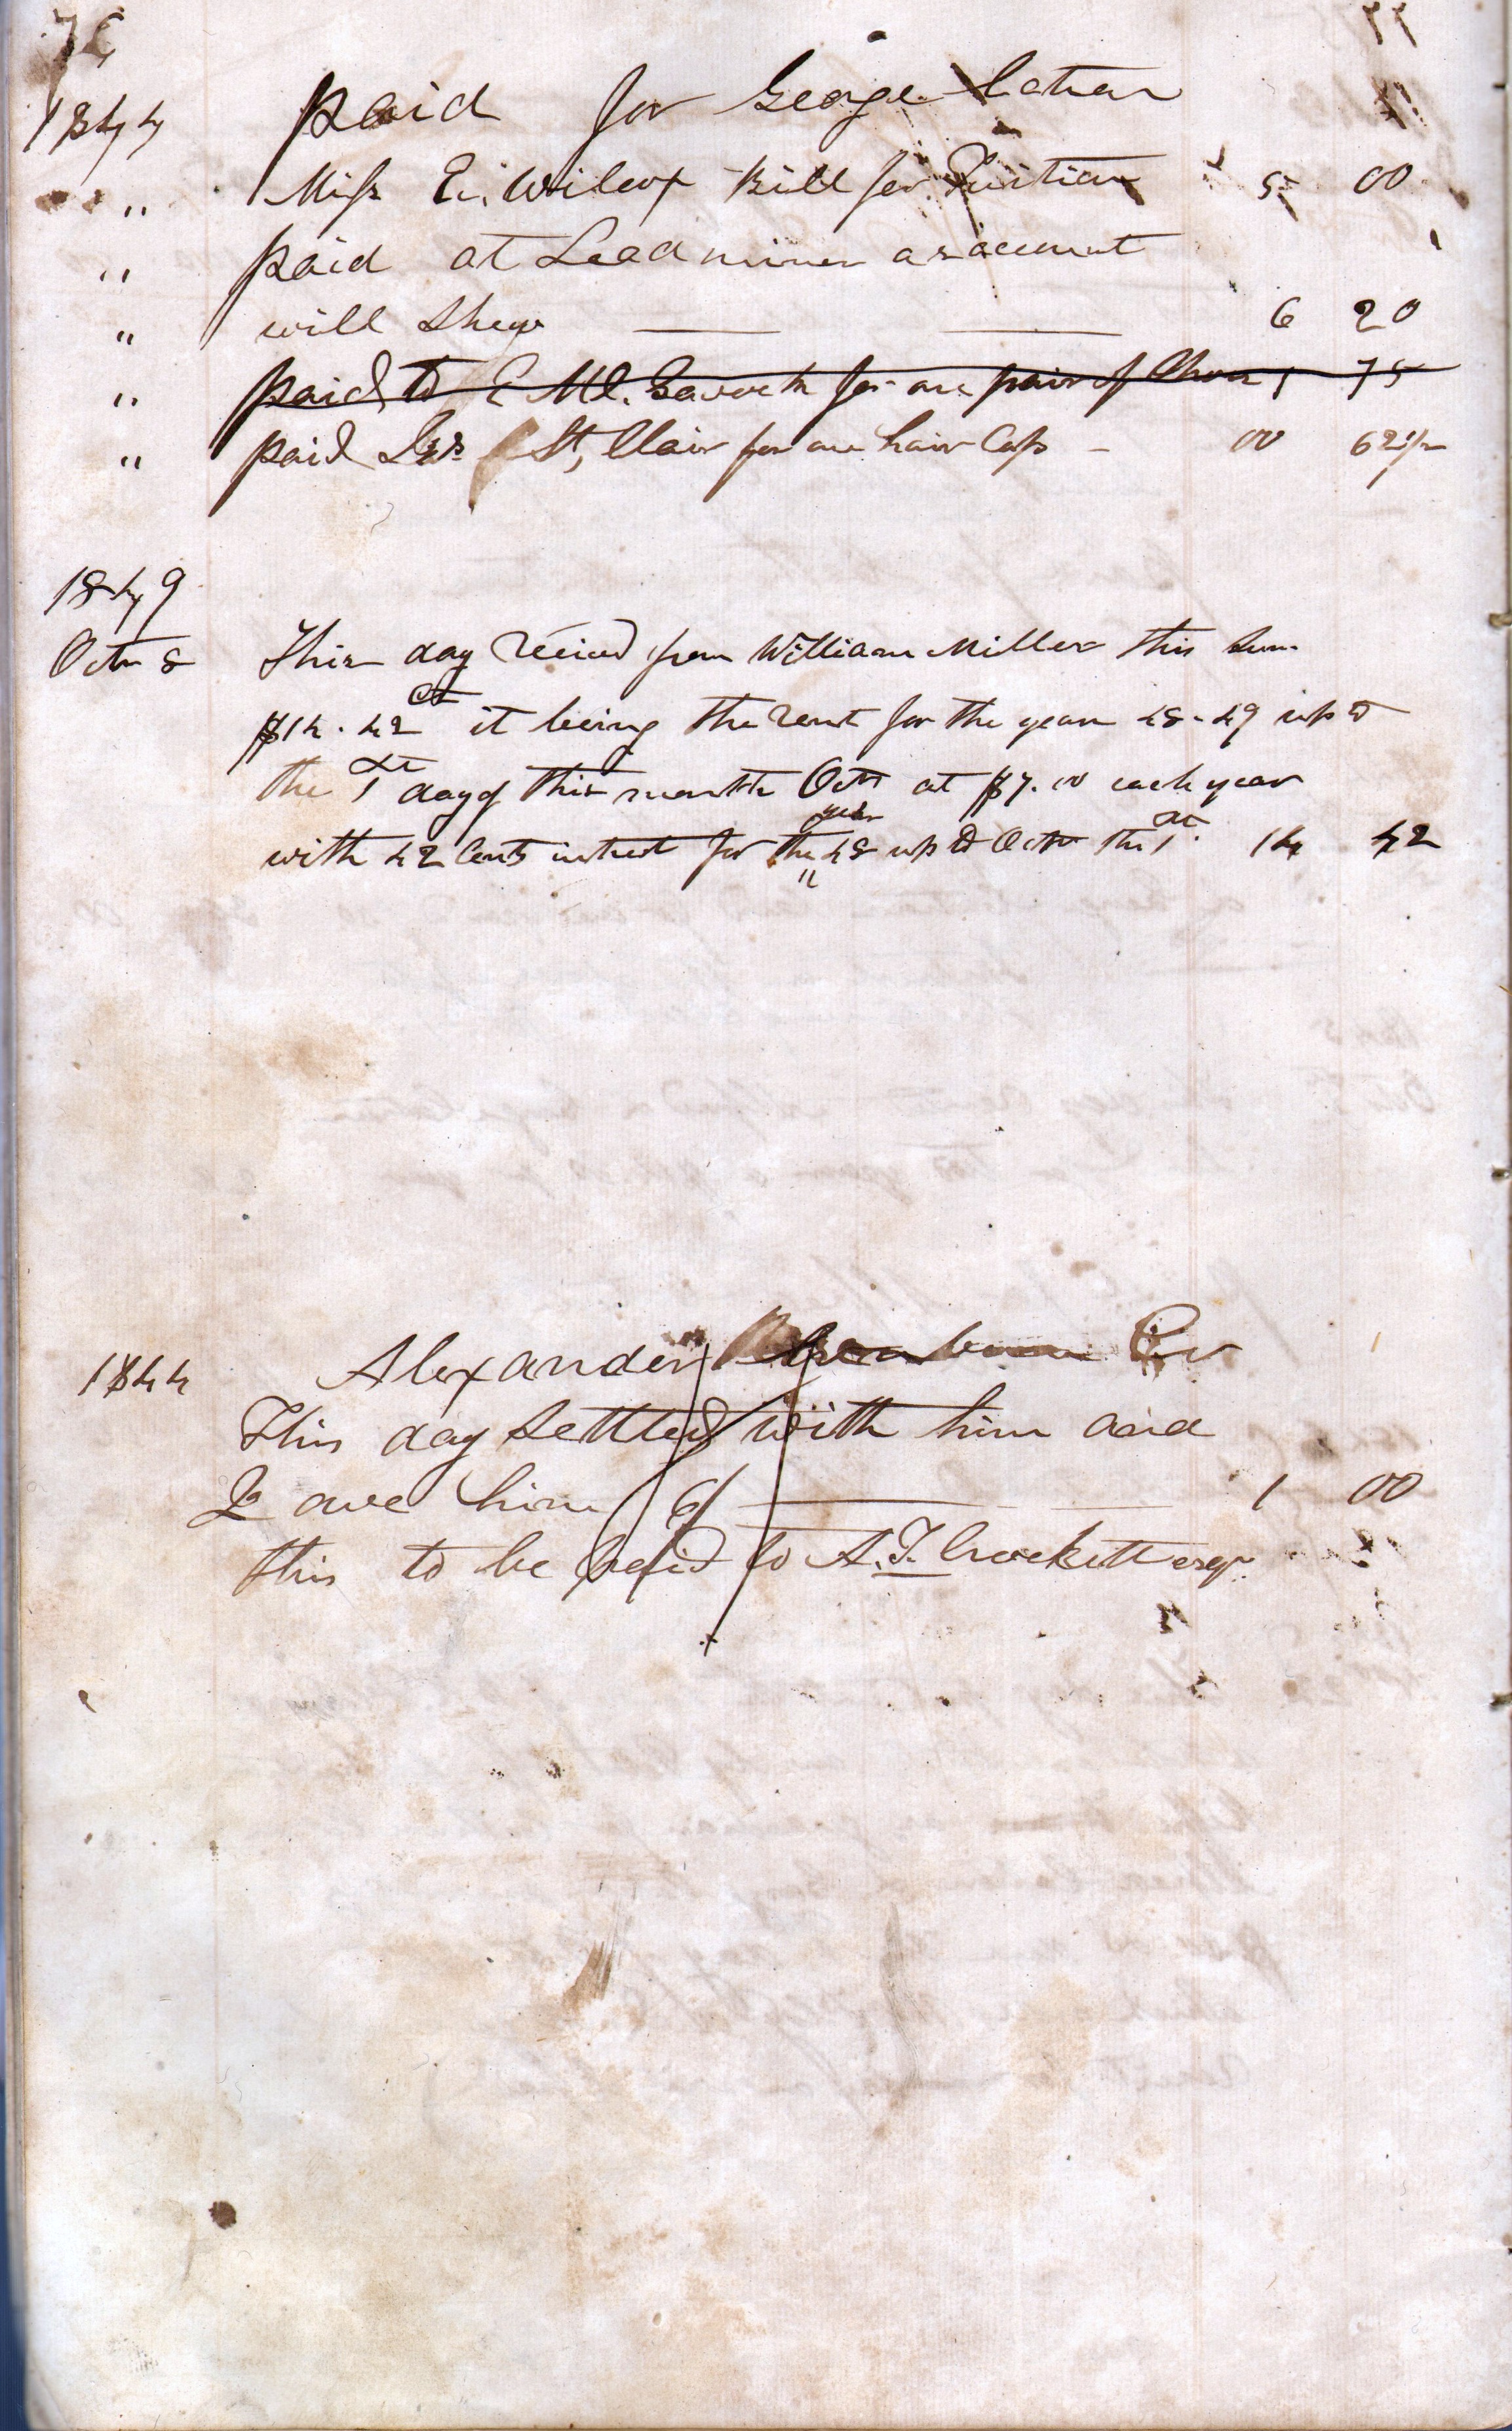 76
1844 Paid for George Catron
" Miss E. Wilcox Bill for Tuition 5 00
" paid at Leadmines as account
" will Shew 6 20
" paid to E Mc. Gavock for one pair of Shoes 1 75
" paid St, Clair for one hair Cap - 00 62 1/2
1849
Octr 8 This day Recived from William Miller this Sum
$14.42 cts it being the rent for the years 48-49 up to
the 1st day of this month Octr at $7.00 each year
with 42 Cents intrest for the year 48 up to Octr the 1st. 14 42
1844 Alexander
This day Settled with him and
I owe him 6/ 1 00
this to be paid to A.T. Crockett esqr